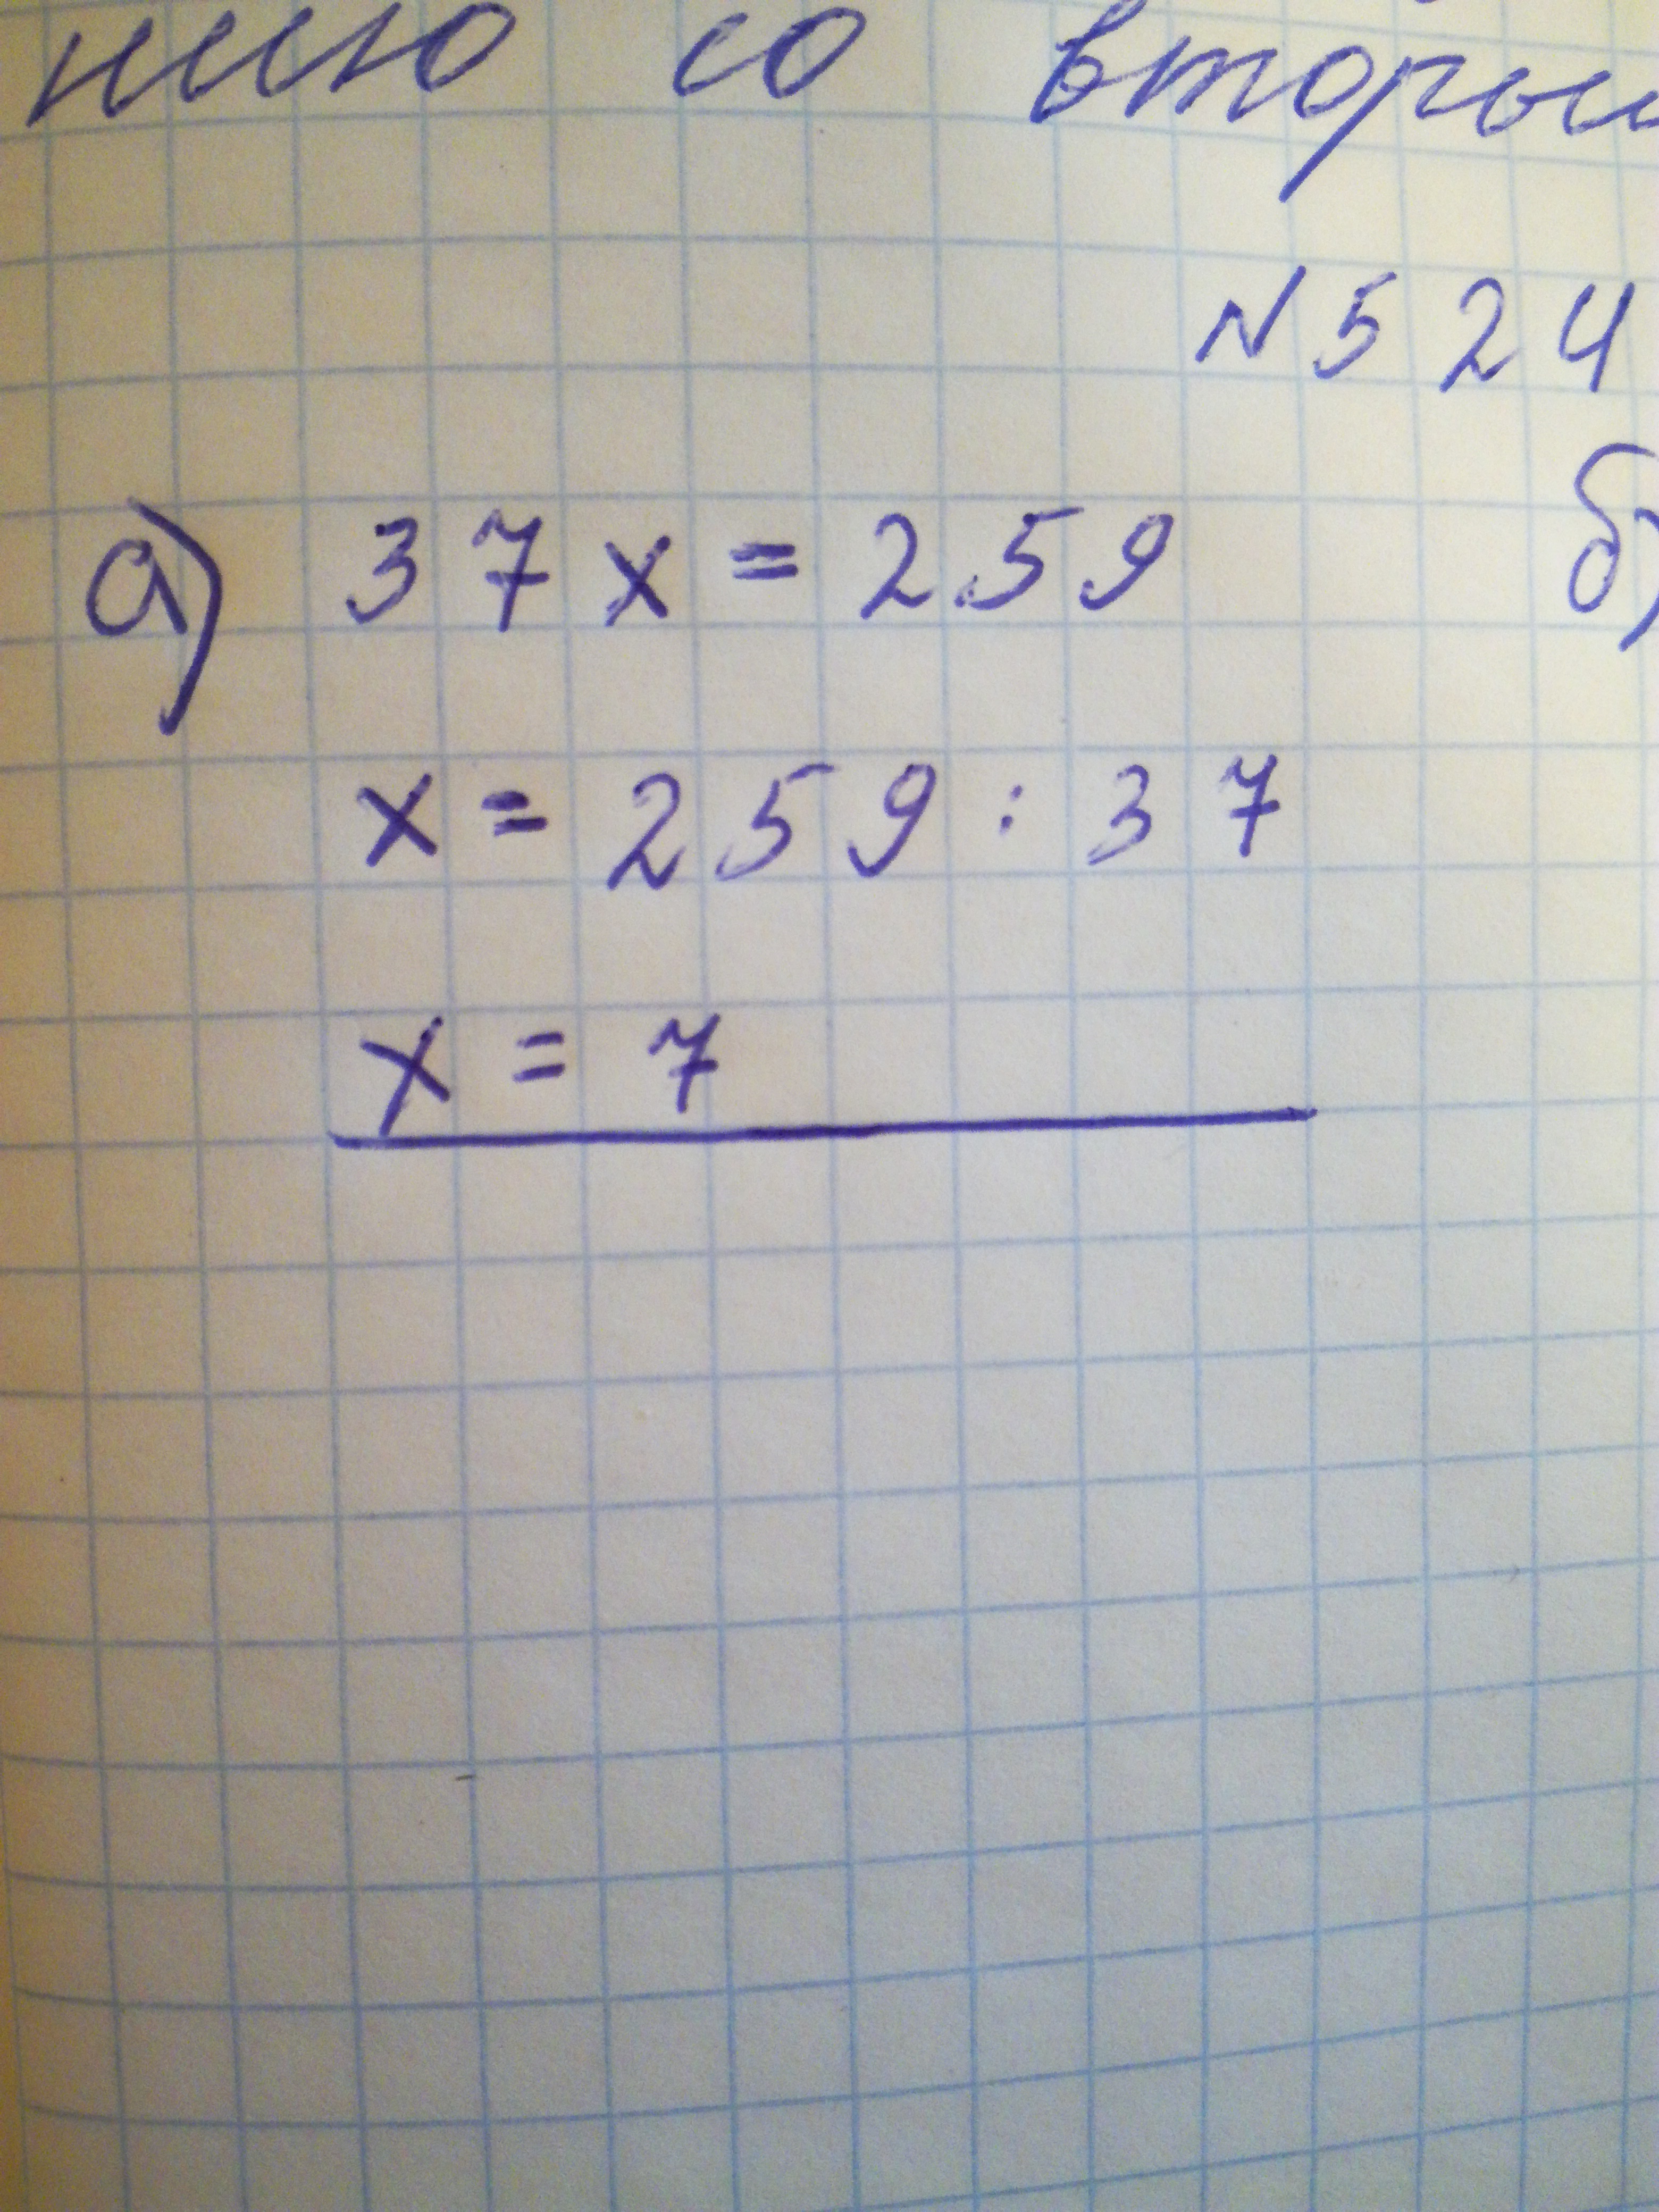 нию со вторым
N 524
а) 37x = 259
б)
x = 259 : 37
x = 7